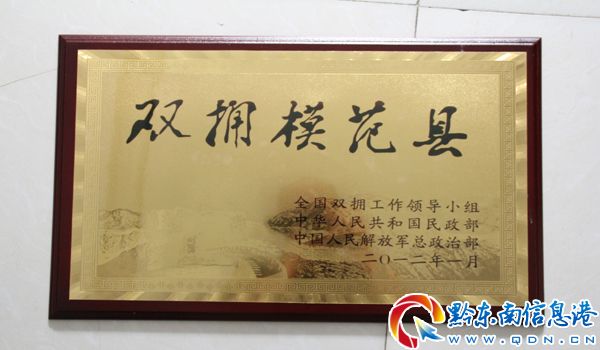 双拥模范县
全国双拥工作领导小组
中华人民共和国民政部
中国人民解放军总政治部
二〇一二年一月
黔东南信息港
www.QDN.cn